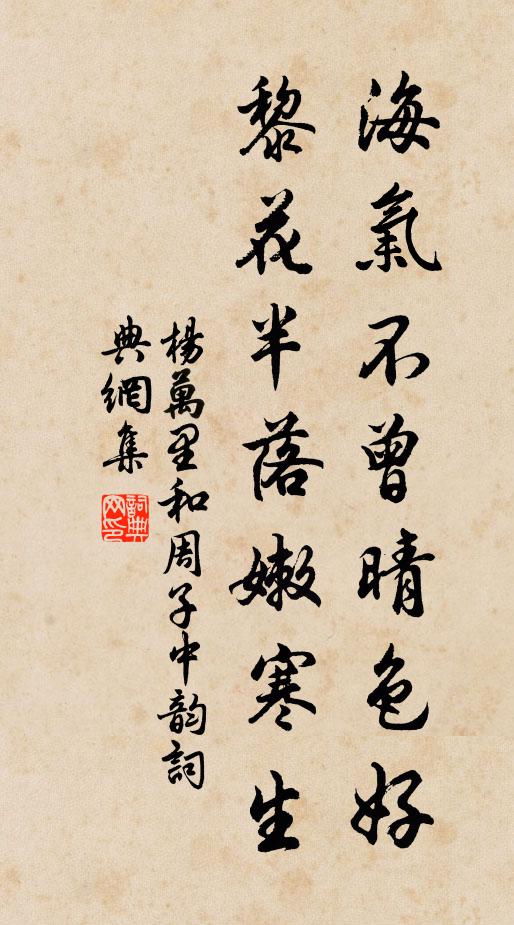 海氣不曾晴色好
黎花半落嫩寒生
楊萬里和周子中韵詞
典網集
詞典
网印